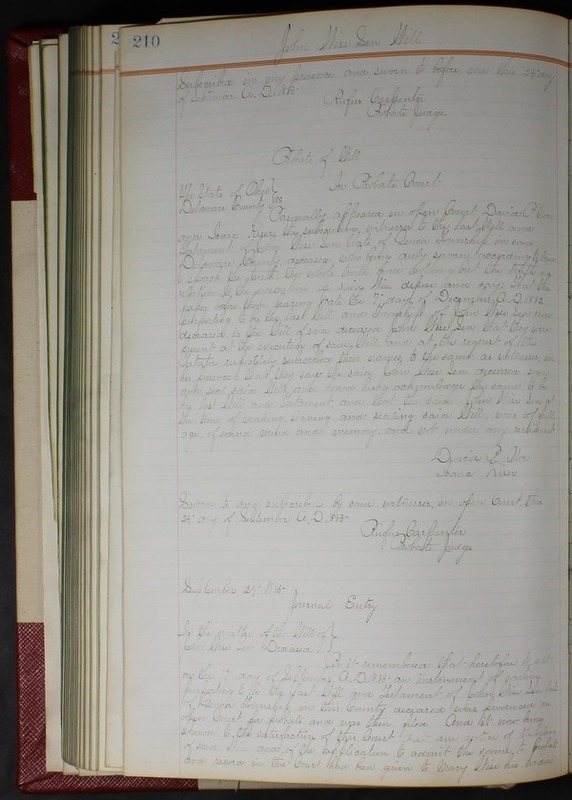 210
John Wise Sen Will
Subscribed in my presence and sworn to before me this 24 day
of September A.D. 1875
Rufus Carpenter
Probate Judge
Probate of Will
The State of Ohio
Delaware County } ss
In Probate Court
Personally appeared in open Court David C
and Isaac Kiser the subscribing witnesses to the last Will and
Testament of John Wise Sen late of Township in said
Delaware County deceased, who being duly sworn according to law
to speak the truth the whole truth and nothing but the truth in
relation to the execution of said Will depose and say that the
paper before them bearing date the 7th day of December A.D. 1872
purporting to be the last Will and Testament of John Wise Sen now
deceased is the Will of said deceased John Wise Sen that they were
present at the execution of said Will and at the request of the
testator respectively subscribed their names to the same as witnesses in
his presence that they saw the said John Wise Sen deceased sign
and seal said Will, and heard him acknowledge the same to be
his last Will and Testament, and that the said John Wise Sen at
the time of making, signing and sealing said Will was of full
age, of sound mind and memory, and not under any restraint
David C
Isaac Kiser
Sworn to and subscribed by said witnesses, in open Court, this
24 day of September A.D. 1875
Rufus Carpenter
Probate Judge
September 24 1875
Journal Entry
In the matter of the Will of
John Wise Sen Deceased
Be it remembered that heretofore to wit
on the day of September A.D. 1875 an instrument of writing
purporting to be the last Will and Testament of John Wise Sen late
of Township in this County deceased was produced in
open Court for probate and was then filed. And it now being
shown to the satisfaction of this Court that due notice of the filing
of said Will and of the application to admit the same to probate
and record in this Court has been given to Mary Wise his widow